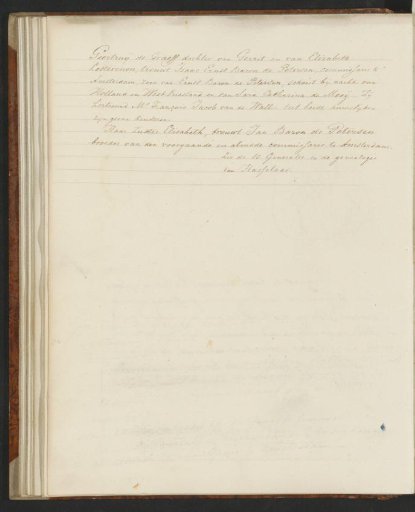 Geertrui de Graeff dochter van Gerrit en van Elizabeth
Lestevenon, trouwt Isaac Ernst Baron de Petersen, commissaris te
Amsterdam, zoon van Ernst Baron de Petersen, schout bij nacht van
Holland en West Vriesland en van Sara Catharina de Mooij. Zij
hertrouwt Mr François Jacob van de Wall. Uit beide huwelijken
zijn geene kinderen.
Haar zuster Elisabeth, trouwt Jan Baron de Petersen
broeder van den voorgaande en almede commissaris te Amsterdam.
zie de St. Generaal en de genealogie
van Hasselaar.